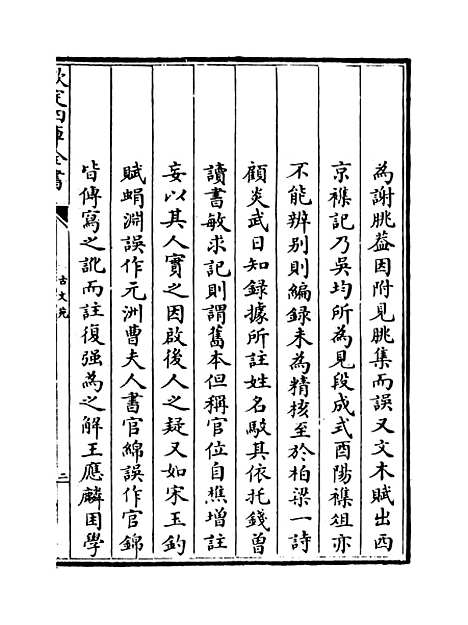 為謝朓葢因附見朓集而誤又文木賦出西
京襍記乃吳均所為見段成式酉陽襍俎亦
不能辨别則編録未為精核至於柏梁一詩
顧炎武日知録據所註姓名駮其依托錢曾
讀書敏求記則謂舊本但稱官位自樵增註
妄以其人實之因啟後人之疑又如宋玉釣
賦蜎淵誤作元洲曹夫人書官綿誤作官錦
皆傳寫之訛而註復强為之解王應麟困學
欽定四庫全書
古文苑
二